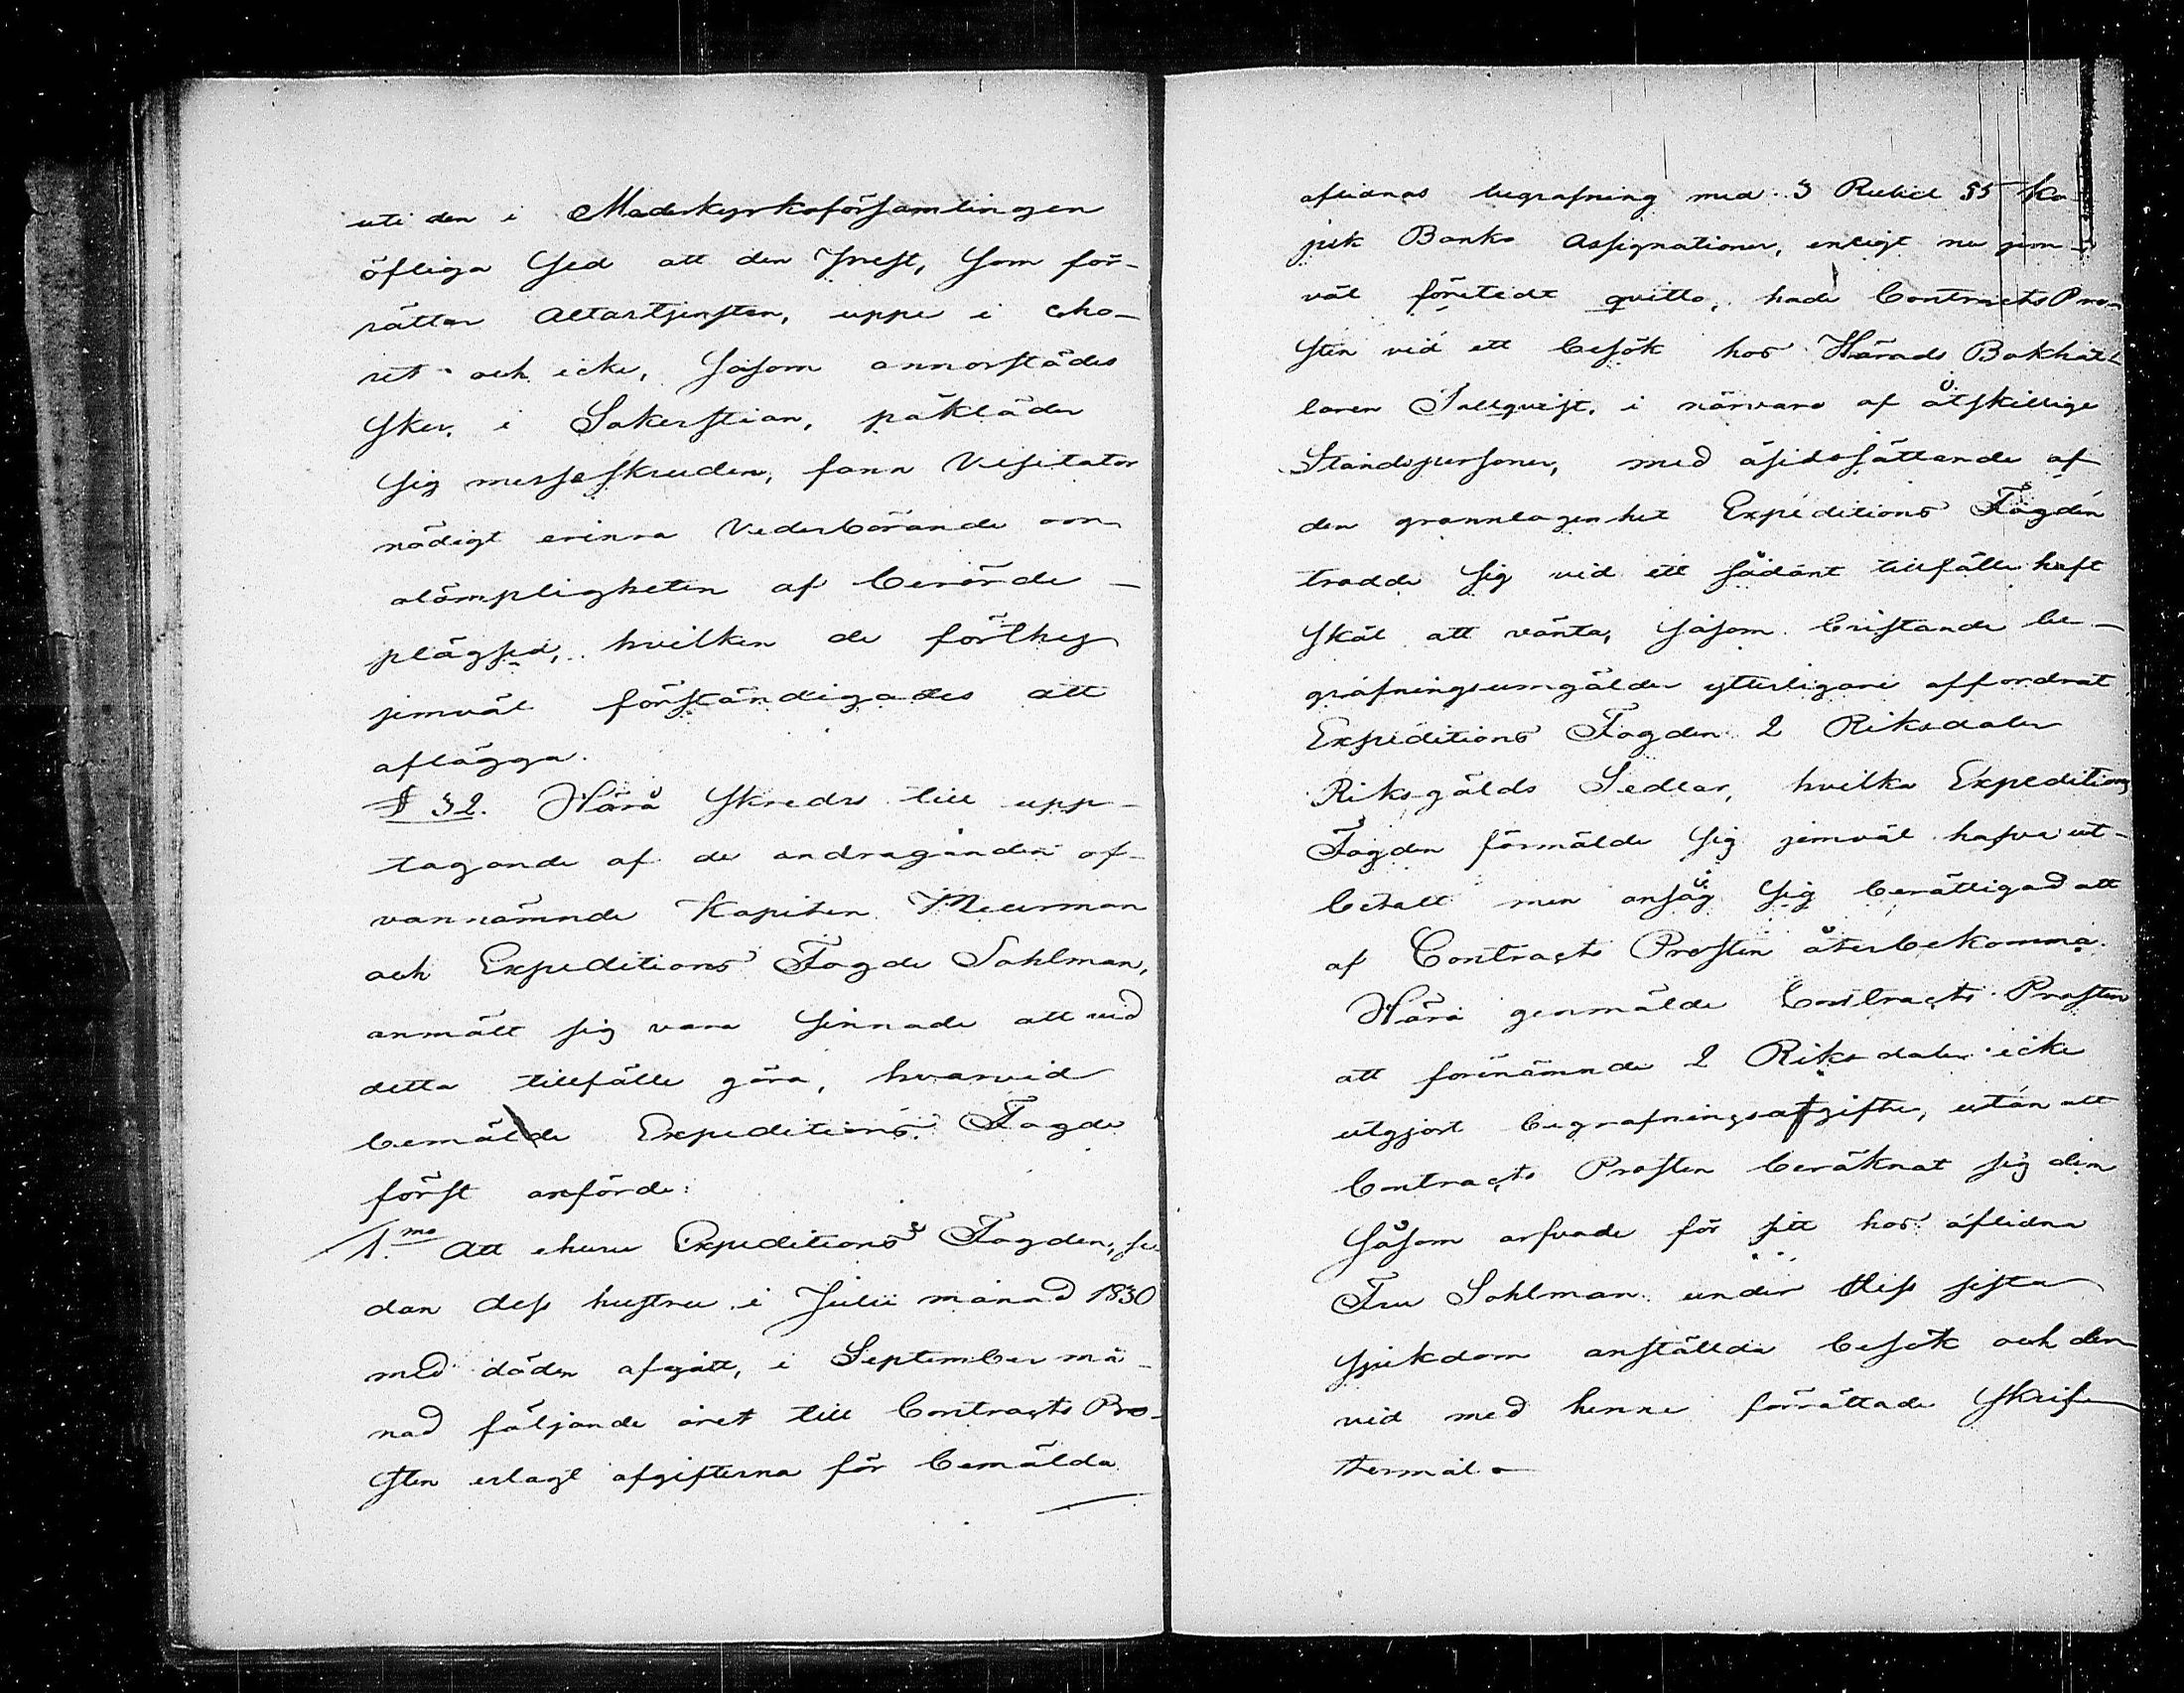 uti den i Moderkyrkoförsamlingen
öfliga Sed att den Prest, Som för-
rättar Altartjensten, uppe i cho-
ret och icke, Såsom annorstädes
Sker, i Sakerstian, påkläder
Sig messeskruden, fann Visitator
nödigt erinra Vederbörande om
olämpligheten af berörde
plägsed, hvilken de förthy
jemväl förständigades att
aflägga.
§ 32. Härå Skreds till upp-
tagande af de andraganden of-
vannämnde Kapiten Meurman
och Expeditions Fogde Sahlman,
anmält sig vara Sinnade att vid
detta tillfälle göra, hvarvid
bemälde Expeditions Fogde
först anförde:
1mo Att ehuru Expeditions Fogden, se-
dan dess hustru i Julii månad 1830
med döden afgått, i September må-
nad följande året till Contracts Pro-
sten erlagt afgifterna för bemälda
aflidnas begrafning med 3 Rubel 55 Ko-
pek Banko Assignationer, enligt nu jem-
väl företedt qvitto, hade Contracts Pro-
sten vid ett besök hos Härads Bokhål-
laren Sallqvist, i närvaro af åtskillige
Ståndspersoner, med åsidosättande af
den grannlagenhet Expeditions Fogden
trodde Sig vid ett sådant tillfälle haft
Skäl att vänta, Såsom bristande be-
grafningsumgälder ytterligare affordrat
Expeditions Fogden 2 Riksdaler
Riksgälds Sedlar, hvilka Expeditions
Fogden förmälde Sig jemväl hafva ut-
betalt men ansåg Sig berättigad att
af Contracts Prosten återbekomma.
Härå genmälde Contracts Prosten
att förenämnde 2 Riksdaler icke
utgjort begrafningsafgifter, utan att
Contracts Prosten beräknat sig dem
Såsom arfvode för sitt hos aflidna
Fru Sahlman under dess sista
Sjukdom anställda besök och der-
vid med henne förrättade Skrif-
termål